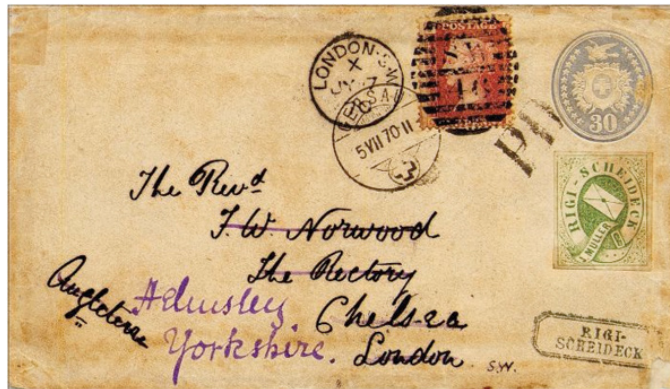 LONDON·S.W
X
JY 7
GERSAU
5 VII 70·11
POSTAGE
S.W
30
PD
RIGI-SCHEIDECK
MÜLLER
The Revd
T.W. Norwood
The Rectory
Angleterre
Helmsley
Chelsea
Yorkshire.
London
S.W.
RIGI-
SCHEIDECK